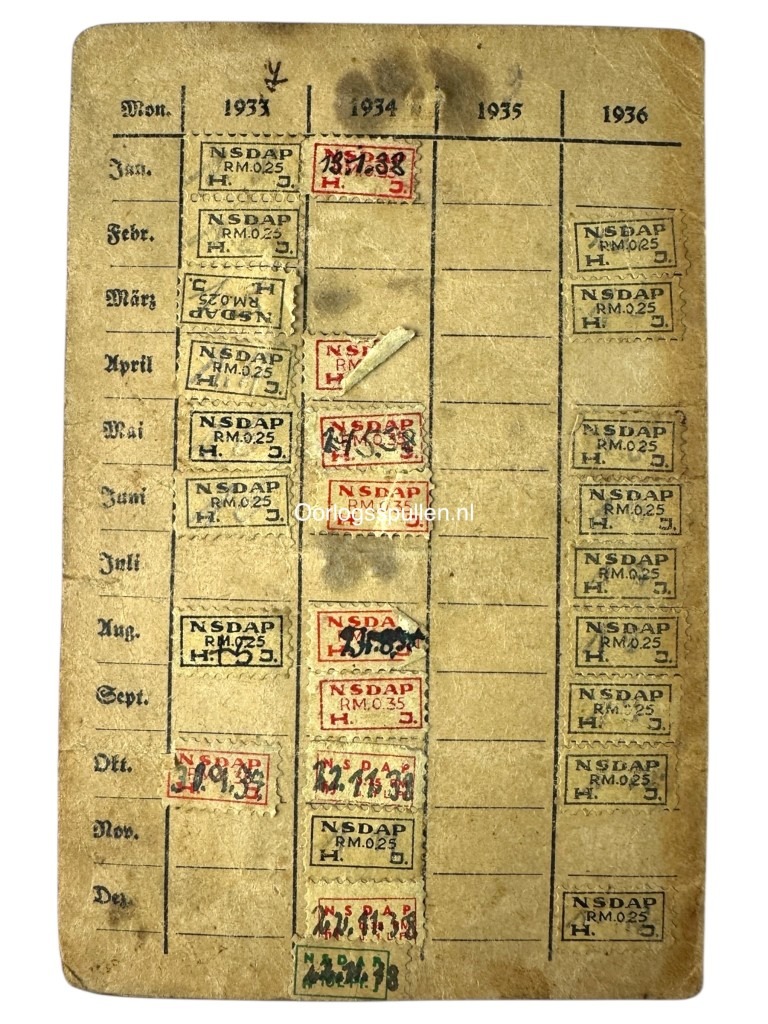 7
Mon. 1933 1934 1935 1936
Jan. NSDAP RM.0.25 H. J. NSDAP 13.1.38 H. J.
Febr. NSDAP RM.0.25 H. J. NSDAP RM.0.25 H. J.
März NSDAP RM.0.25 H. J. NSDAP RM.0.25 H. J.
April NSDAP RM.0.25 H. J.
Mai NSDAP RM.0.25 H. J. NSDAP RM.0.35 H. J. NSDAP RM.0.25 H. J.
Juni NSDAP RM.0.25 H. J. NSDAP RM.0.35 H. J. NSDAP RM.0.25 H. J.
Oorlogsspullen.nl
Juli NSDAP RM.0.25 H. J.
Aug. NSDAP RM.0.25 H. J. NSDAP RM.0.25 H. J.
Sept. NSDAP RM.0.35 H. J. NSDAP RM.0.25 H. J.
Okt. NSDAP H. J. NSDAP 22.11.38 NSDAP RM.0.25 H. J.
Nov. NSDAP RM.0.25 H. J.
Dez. NSDAP 22.11.38 NSDAP RM.0.25 H. J.
NSDAP